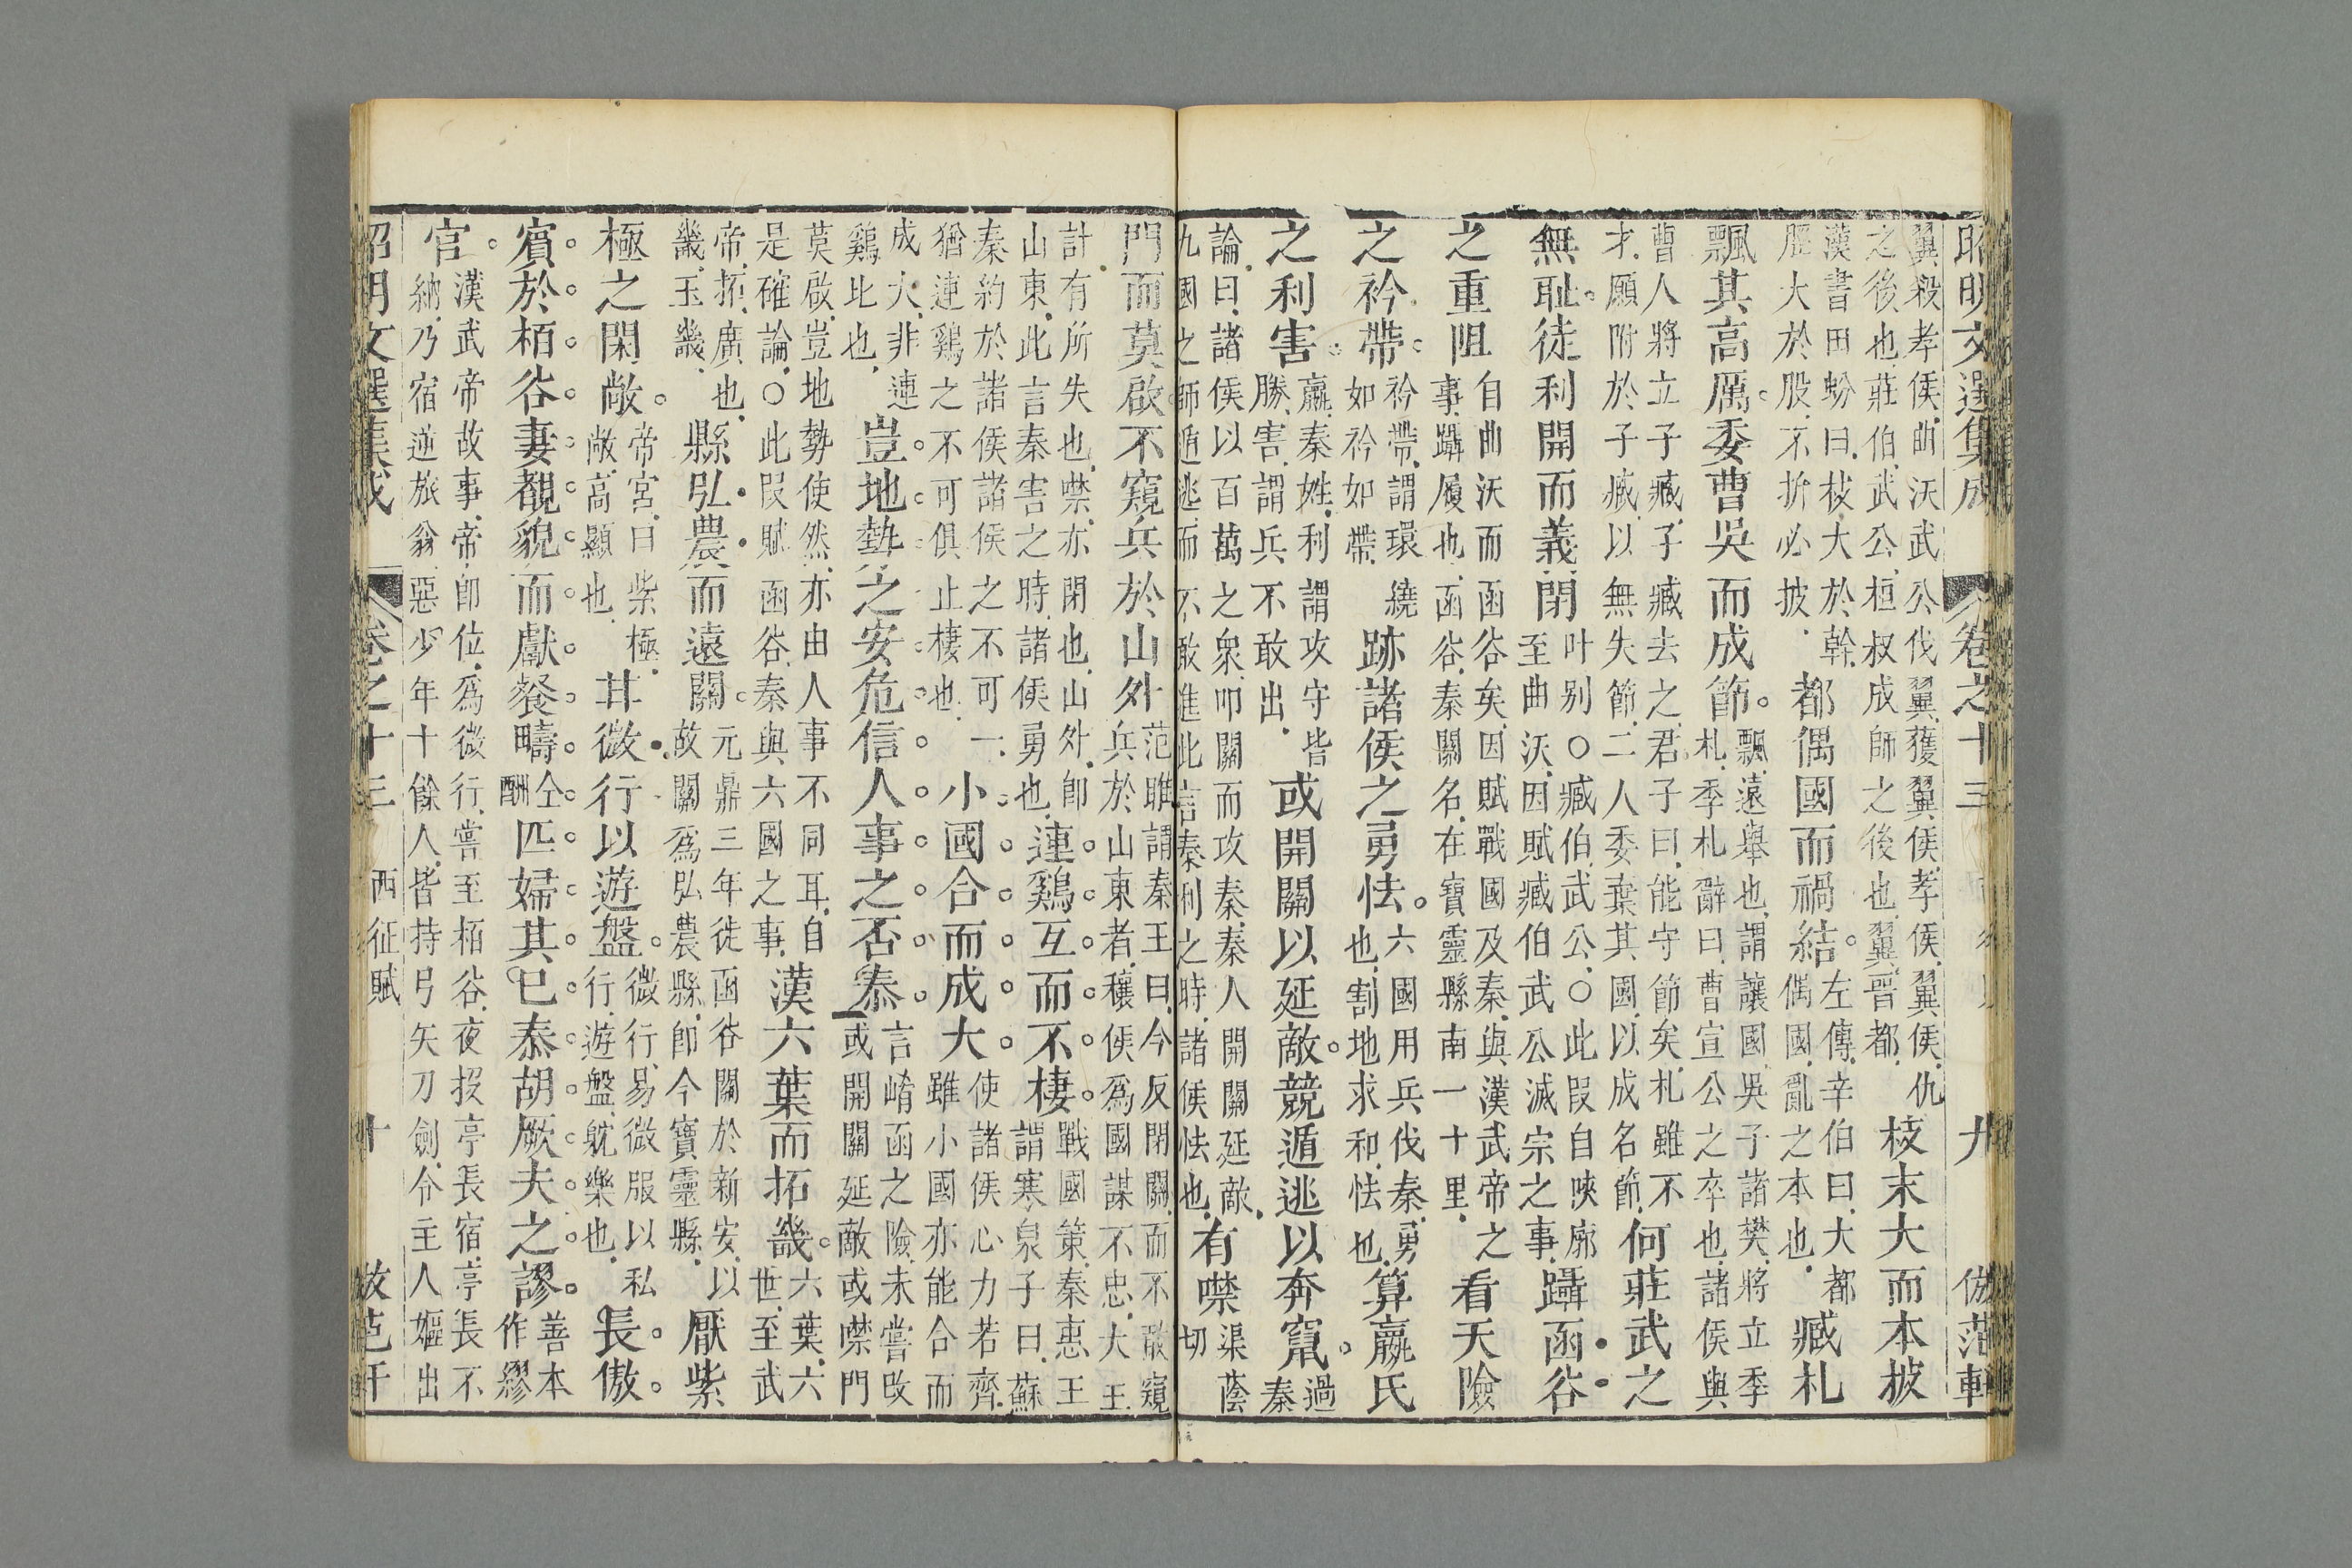 昭明文選集成 卷之十三 九 倣范軒
翼殺孝侯曲沃武公伐翼獲翼侯孝侯翼侯仇
之後也莊伯武公桓叔成師之後也翼晉都
枝末大而本披
漢書田蚡曰枝大於幹
脛大於股不折必披
都偶國而禍結。
左傳辛伯曰大都
偶國亂之本也
臧札
飄其高厲。委曹吳而成節。
飄遠舉也謂讓國吳子諸樊將立季
札季札辭曰曹宣公之卒也諸侯與
曹人將立子臧子臧去之君子曰能守節矣札雖不
才願附於子臧以無失節二人委棄其國以成名節
何莊武之
無耻。徒利開而義閉
叶别〇臧伯武公〇此叚自陝廓
至曲沃因賦臧伯武公滅宗之事
躡函谷
之重阻
自曲沃而函谷矣因賦戰國及秦與漢武帝之
事躡履也函谷秦關名在寶靈縣南一十里
看天險
之衿帶。
衿帶謂環繞
如衿如帶
跡諸侯之勇怯。
六國用兵伐秦勇
也割地求和怯也
算嬴氏
之利害。
嬴秦姓利謂攻守皆
勝害謂兵不敢出
或開關以延敵。競遁逃以奔竄。
過
秦
論曰諸侯以百萬之衆叩關而攻秦秦人開關延敵
九國之師遁逃而不敢進此言秦利之時諸侯怯也
有噤
渠蔭
切
門而莫啟。不窺兵於山外
范雎謂秦王曰今反閉關而不敢窺
兵於山東者穰侯爲國謀不忠大王
計有所失也噤亦閉也山外卽
山東此言秦害之時諸侯勇也
連鷄互而不棲。
戰國策秦惠王
謂寒泉子曰蘇
秦約於諸侯諸侯之不可一
猶連鷄之不可俱止棲也
小國合而成大。
使諸侯心力若齊
雖小國亦能合而
成大非連
鷄比也
豈地勢之安危。信人事之否泰
言崤函之險未嘗改
或開關延敵或噤門
莫啟豈地勢使然亦由人事不同耳自
是確論〇此叚賦函谷秦與六國之事
漢六葉而拓畿。
六葉六
世至武
帝拓廣也
畿王畿
縣弘農而遠關。
元鼎三年徙函谷關於新安以
故關爲弘農縣卽今寶靈縣
厭紫
極之閑敞。
帝宮曰紫極
敞高顯也
甘微行以遊盤。
微行易微服以私
行遊盤躭樂也
長傲
賓於栢谷。妻覩貌而獻餐。疇
仝
酬
匹婦其已泰。胡厥夫之謬。
善本
作繆
官。
漢武帝故事帝卽位爲微行嘗至栢谷夜投亭長宿亭長不
納乃宿逆旅翁惡少年十餘人皆持弓矢刀劍令主人嫗出
昭明文選集成 卷之十三 西征賦 十 倣范軒